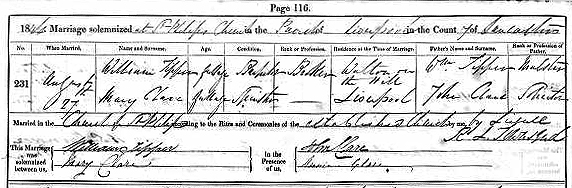 Page 116.
1846 Marriage solemnized at St. Philips Church in the Parish of Liverpool in the County of Lancaster
No. When Married. Name and Surname. Age. Condition. Rank or Profession. Residence at the Time of Marriage. Father's Name and Surname. Rank or Profession of Father.
231 August 27 William Tipper full age Batchelor Walton on the Hill Wm Tipper
Mary Clare full age Spinster — Liverpool John Clare
Married in the Church of St Philips according to the Rites and Ceremonies of the Established Church by me,
This Marriage was solemnized between us, William Tipper
Mary Clare
In the Presence of us, John Clare